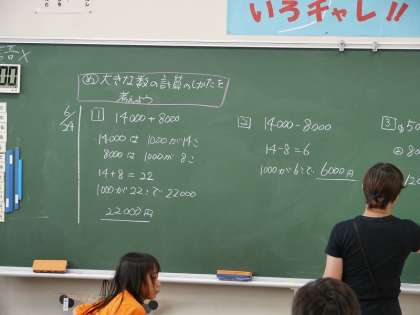 いろチャレ!!
00
め 大きな数の計算のしかたを
考えよう
6/24
1 14000+8000
14000は 1000が14こ
8000は 1000が 8こ
14+8=22
1000が22こで 22000
22000円
2 14000-8000
14-8=6
1000が6こで 6000円
3